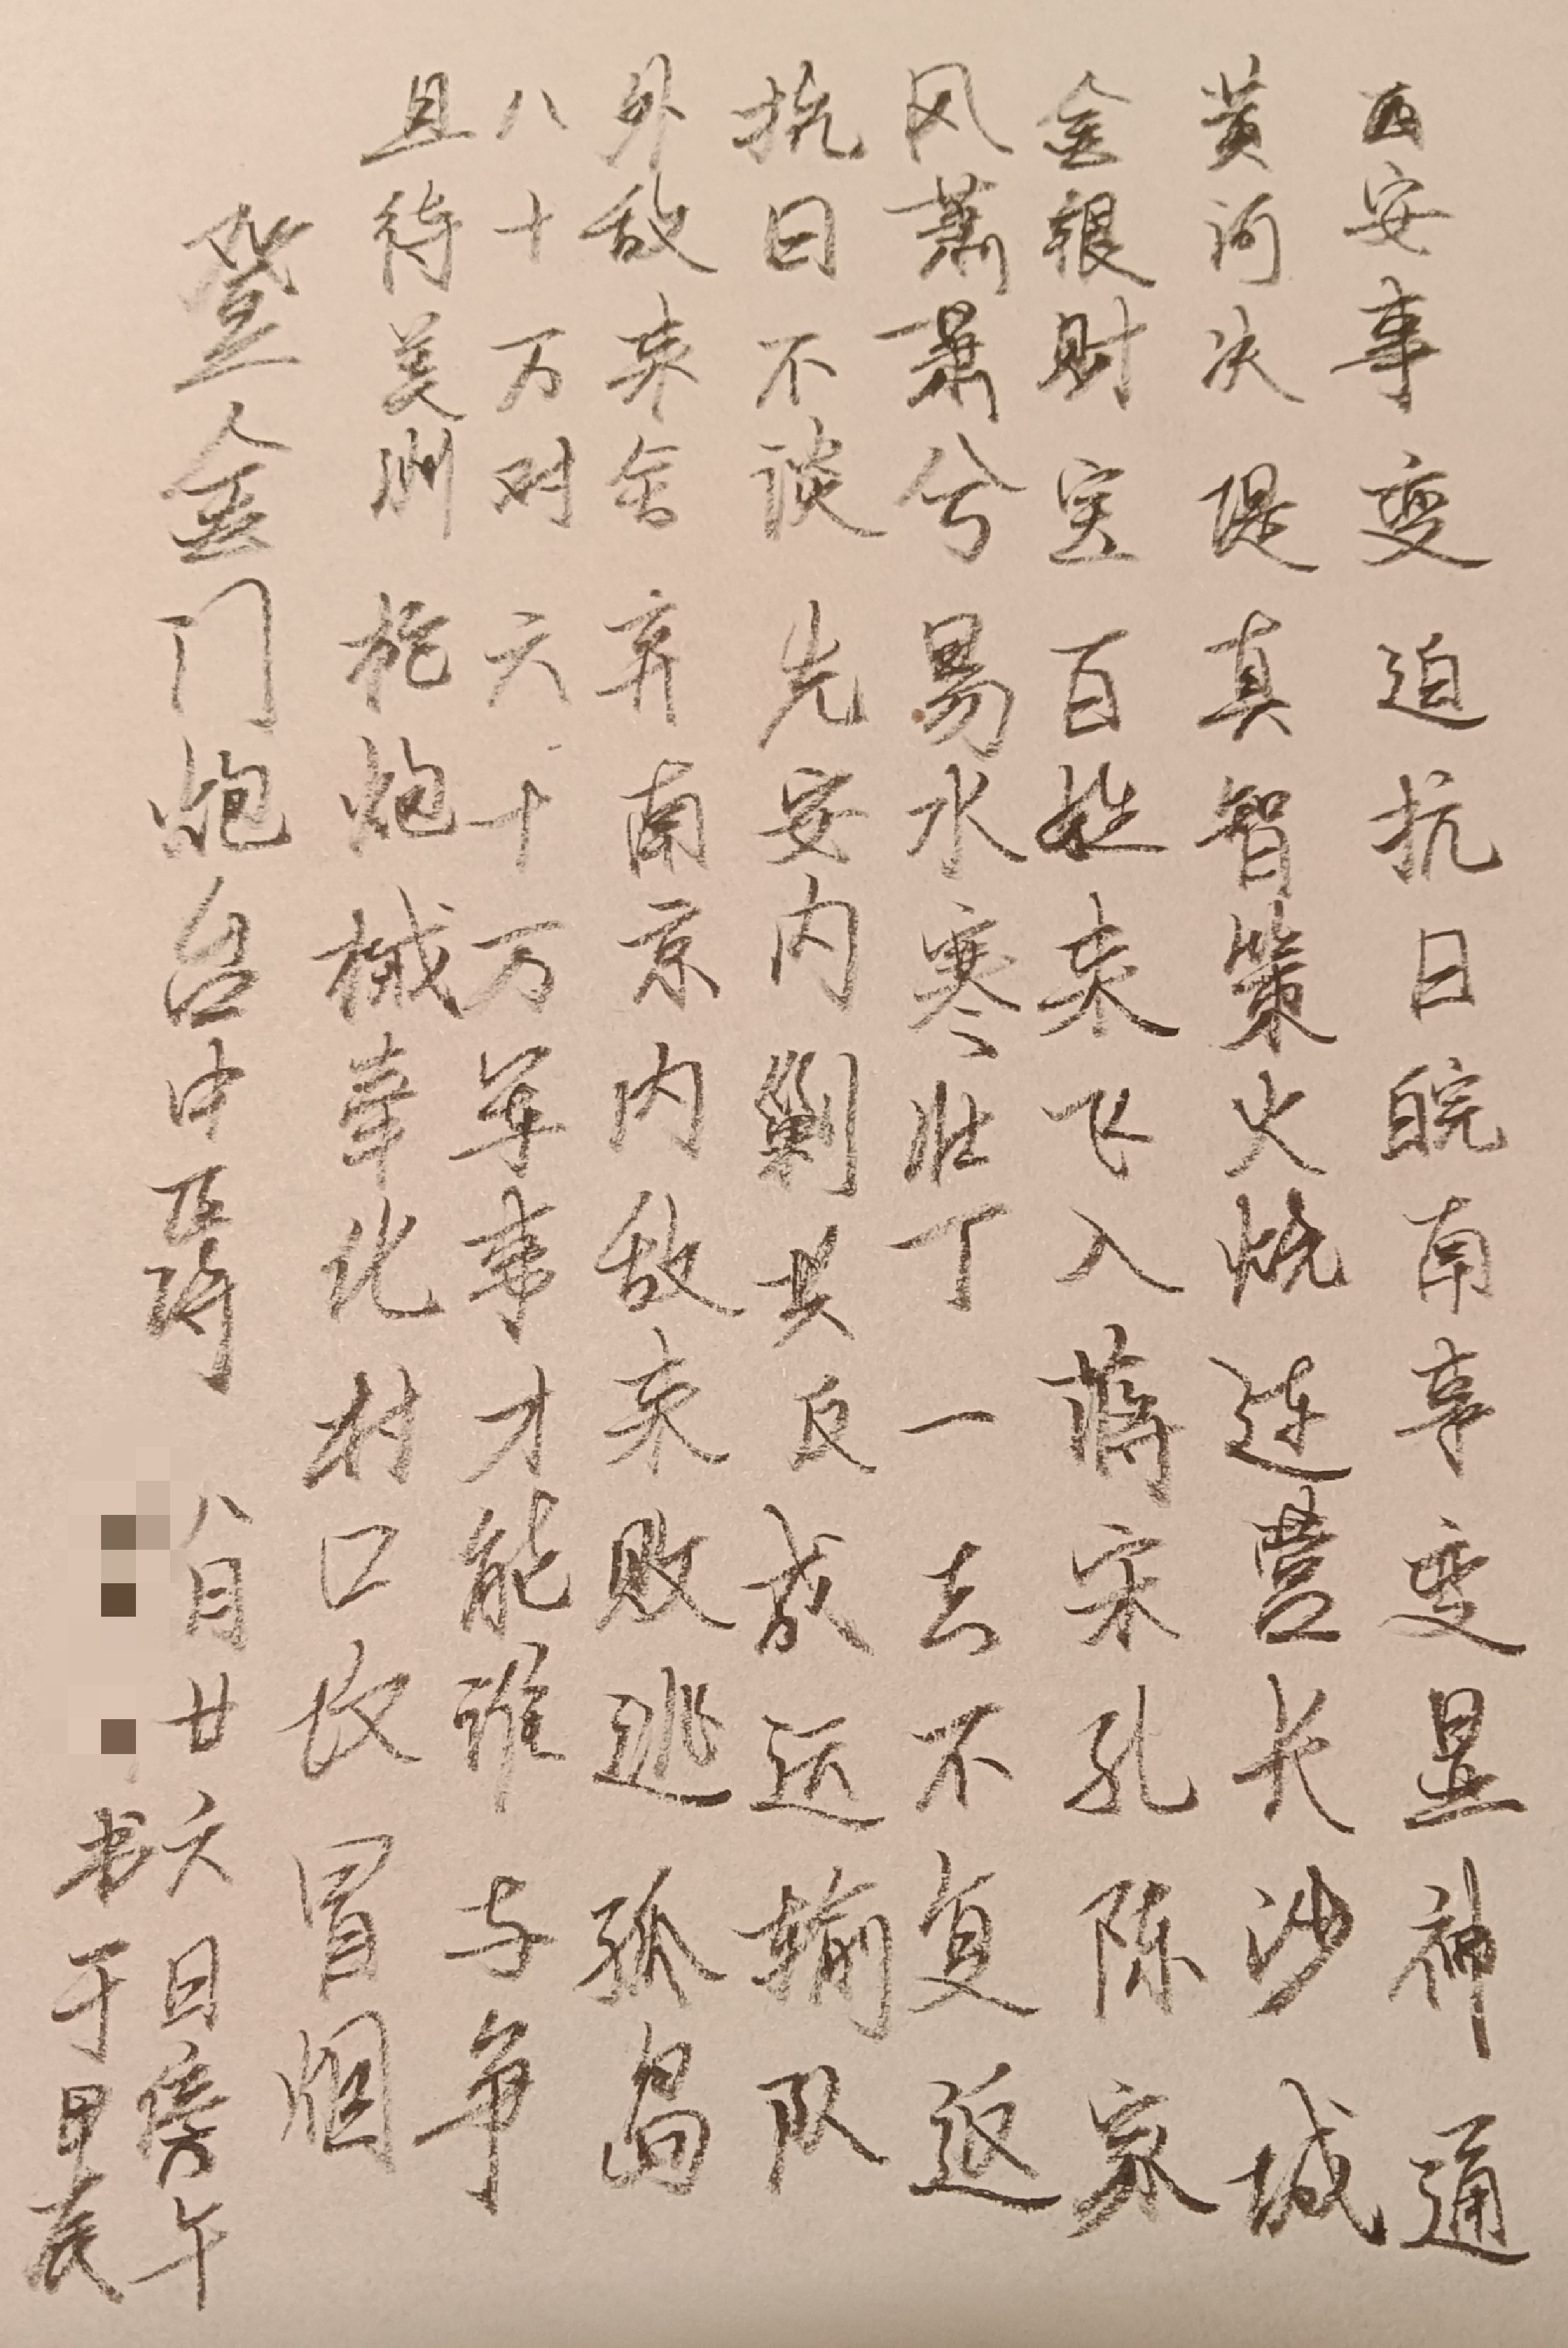 西安事变迫抗日皖南事变显神通
黄河决堤真智策火烧连营长沙城
金银财宝百姓来飞入蒋宋孔陈家
风萧萧兮易水寒壮丁一去不复返
抗日不谈先安内剿共反成运输队
外敌来舍弃南京内敌来败逃孤岛
八十万对六十万军事才能谁与争
且待美洲枪炮械牵化村口收冒烟
登金门炮台中
八月廿六日傍午
书于甲辰